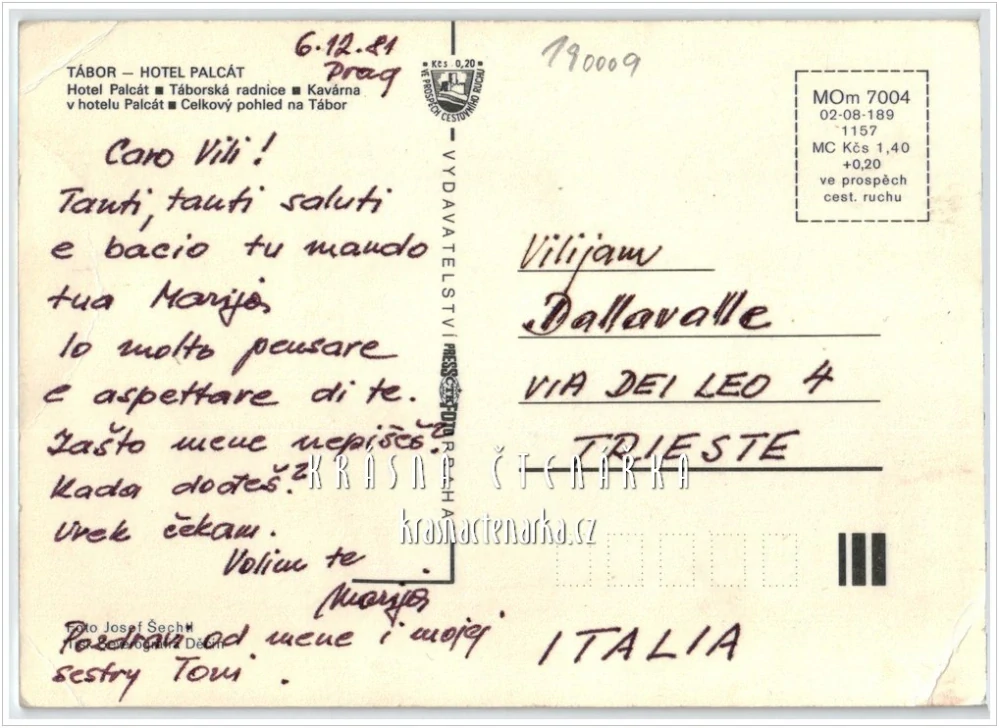 6.12.81
Prag
190009
TÁBOR — HOTEL PALCÁT
Hotel Palcát ■ Táborská radnice ■ Kavárna
v hotelu Palcát ■ Celkový pohled na Tábor
Kčs 0,20
VE PROSPĚCH CESTOVNÍHO RUCHU
MOm 7004
02-08-189
1157
MC Kčs 1,40
+0,20
ve prospěch
cest. ruchu
Caro Vili!
Tanti, tanti saluti
e bacio tu mando
tua Marija
Io molto pensare
e aspettare di te.
Zašto mene nepišeš?
Kada dođeš?
Uvek čekam.
Volim te
Marija
Pozdrav od mene i mojej
sestry Toni.
Foto Josef Šechtl
VYDAVATELSTVÍ PRESSFOTO PRAHA
ČTK
Vilijam
Dallavalle
VIA DEI LEO 4
TRIESTE
ITALIA
KRÁSNÁ ČTENÁŘKA
krasnactenarka.cz